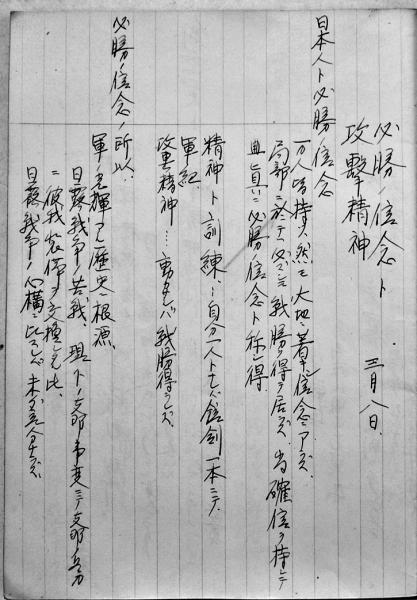 必勝ノ信念ト
攻撃精神 三月八日
日本人ト必勝ノ信念
一万人皆持ツ然モ大地ニ着キシ信念ニアラズ
局部ニ於テハ必ズシモ戦勝ヲ得居ラズ 尚確信ヲ持シテ
真ニ必勝ノ信念ト称シ得
精神ト訓練…自分一人トナレバ銃剣一本ニテ
軍紀
攻撃精神…動カザレバ戦勝得ラレズ
必勝ノ信念ノ所以
軍ノ光輝アル歴史ノ根源
日露戦争ノ苦戦、現下ノ支那事変ニテ支那兵力
ニ彼我装備ヲ交換シ見ヨ
日露戦争ノ心構ニ比スレバ未ダ十分ナラズ